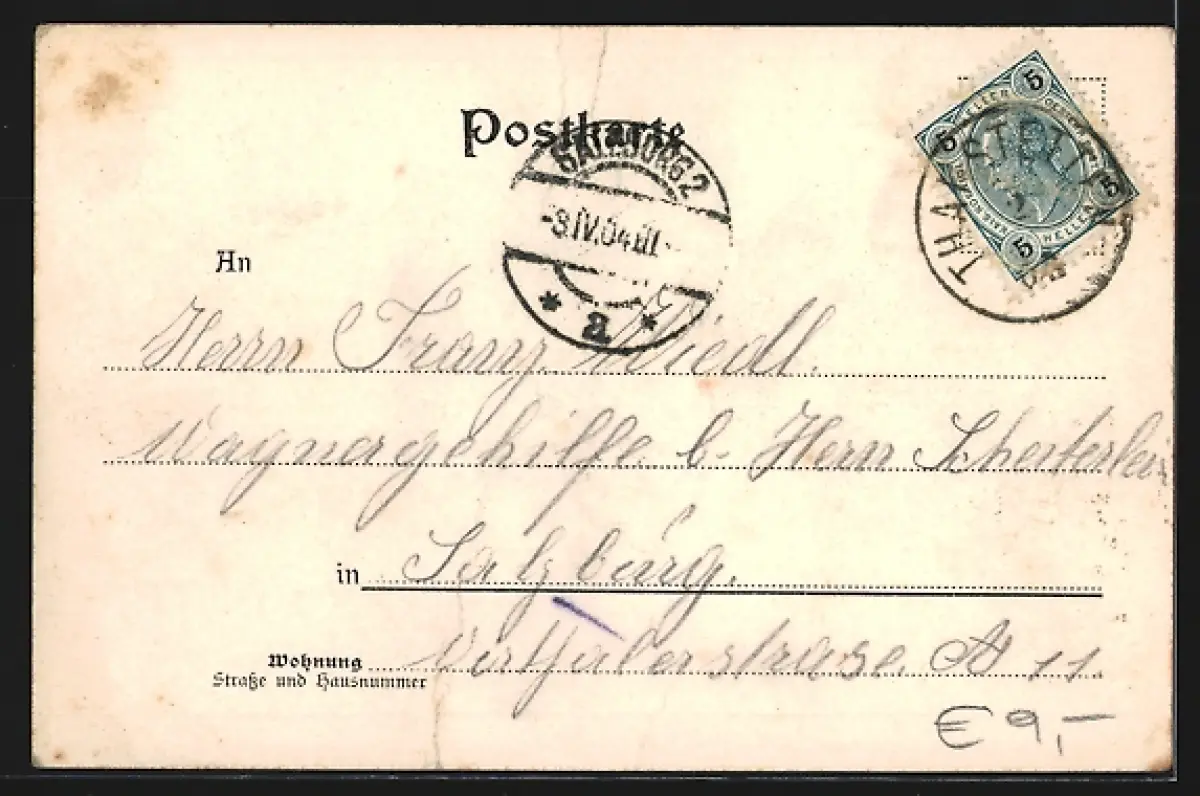 Postkarte
SALZBURG 2
-3.IV.04 III-
* a *
5 HELLER 5
5 HELLER 5
THAL
An
Herrn Franz Wiedl.
Wagnergehilfe b. Herrn Scheiterlein
in Salzburg.
Wohnung
Straße und Hausnummer
№ 11.
€ 9,-